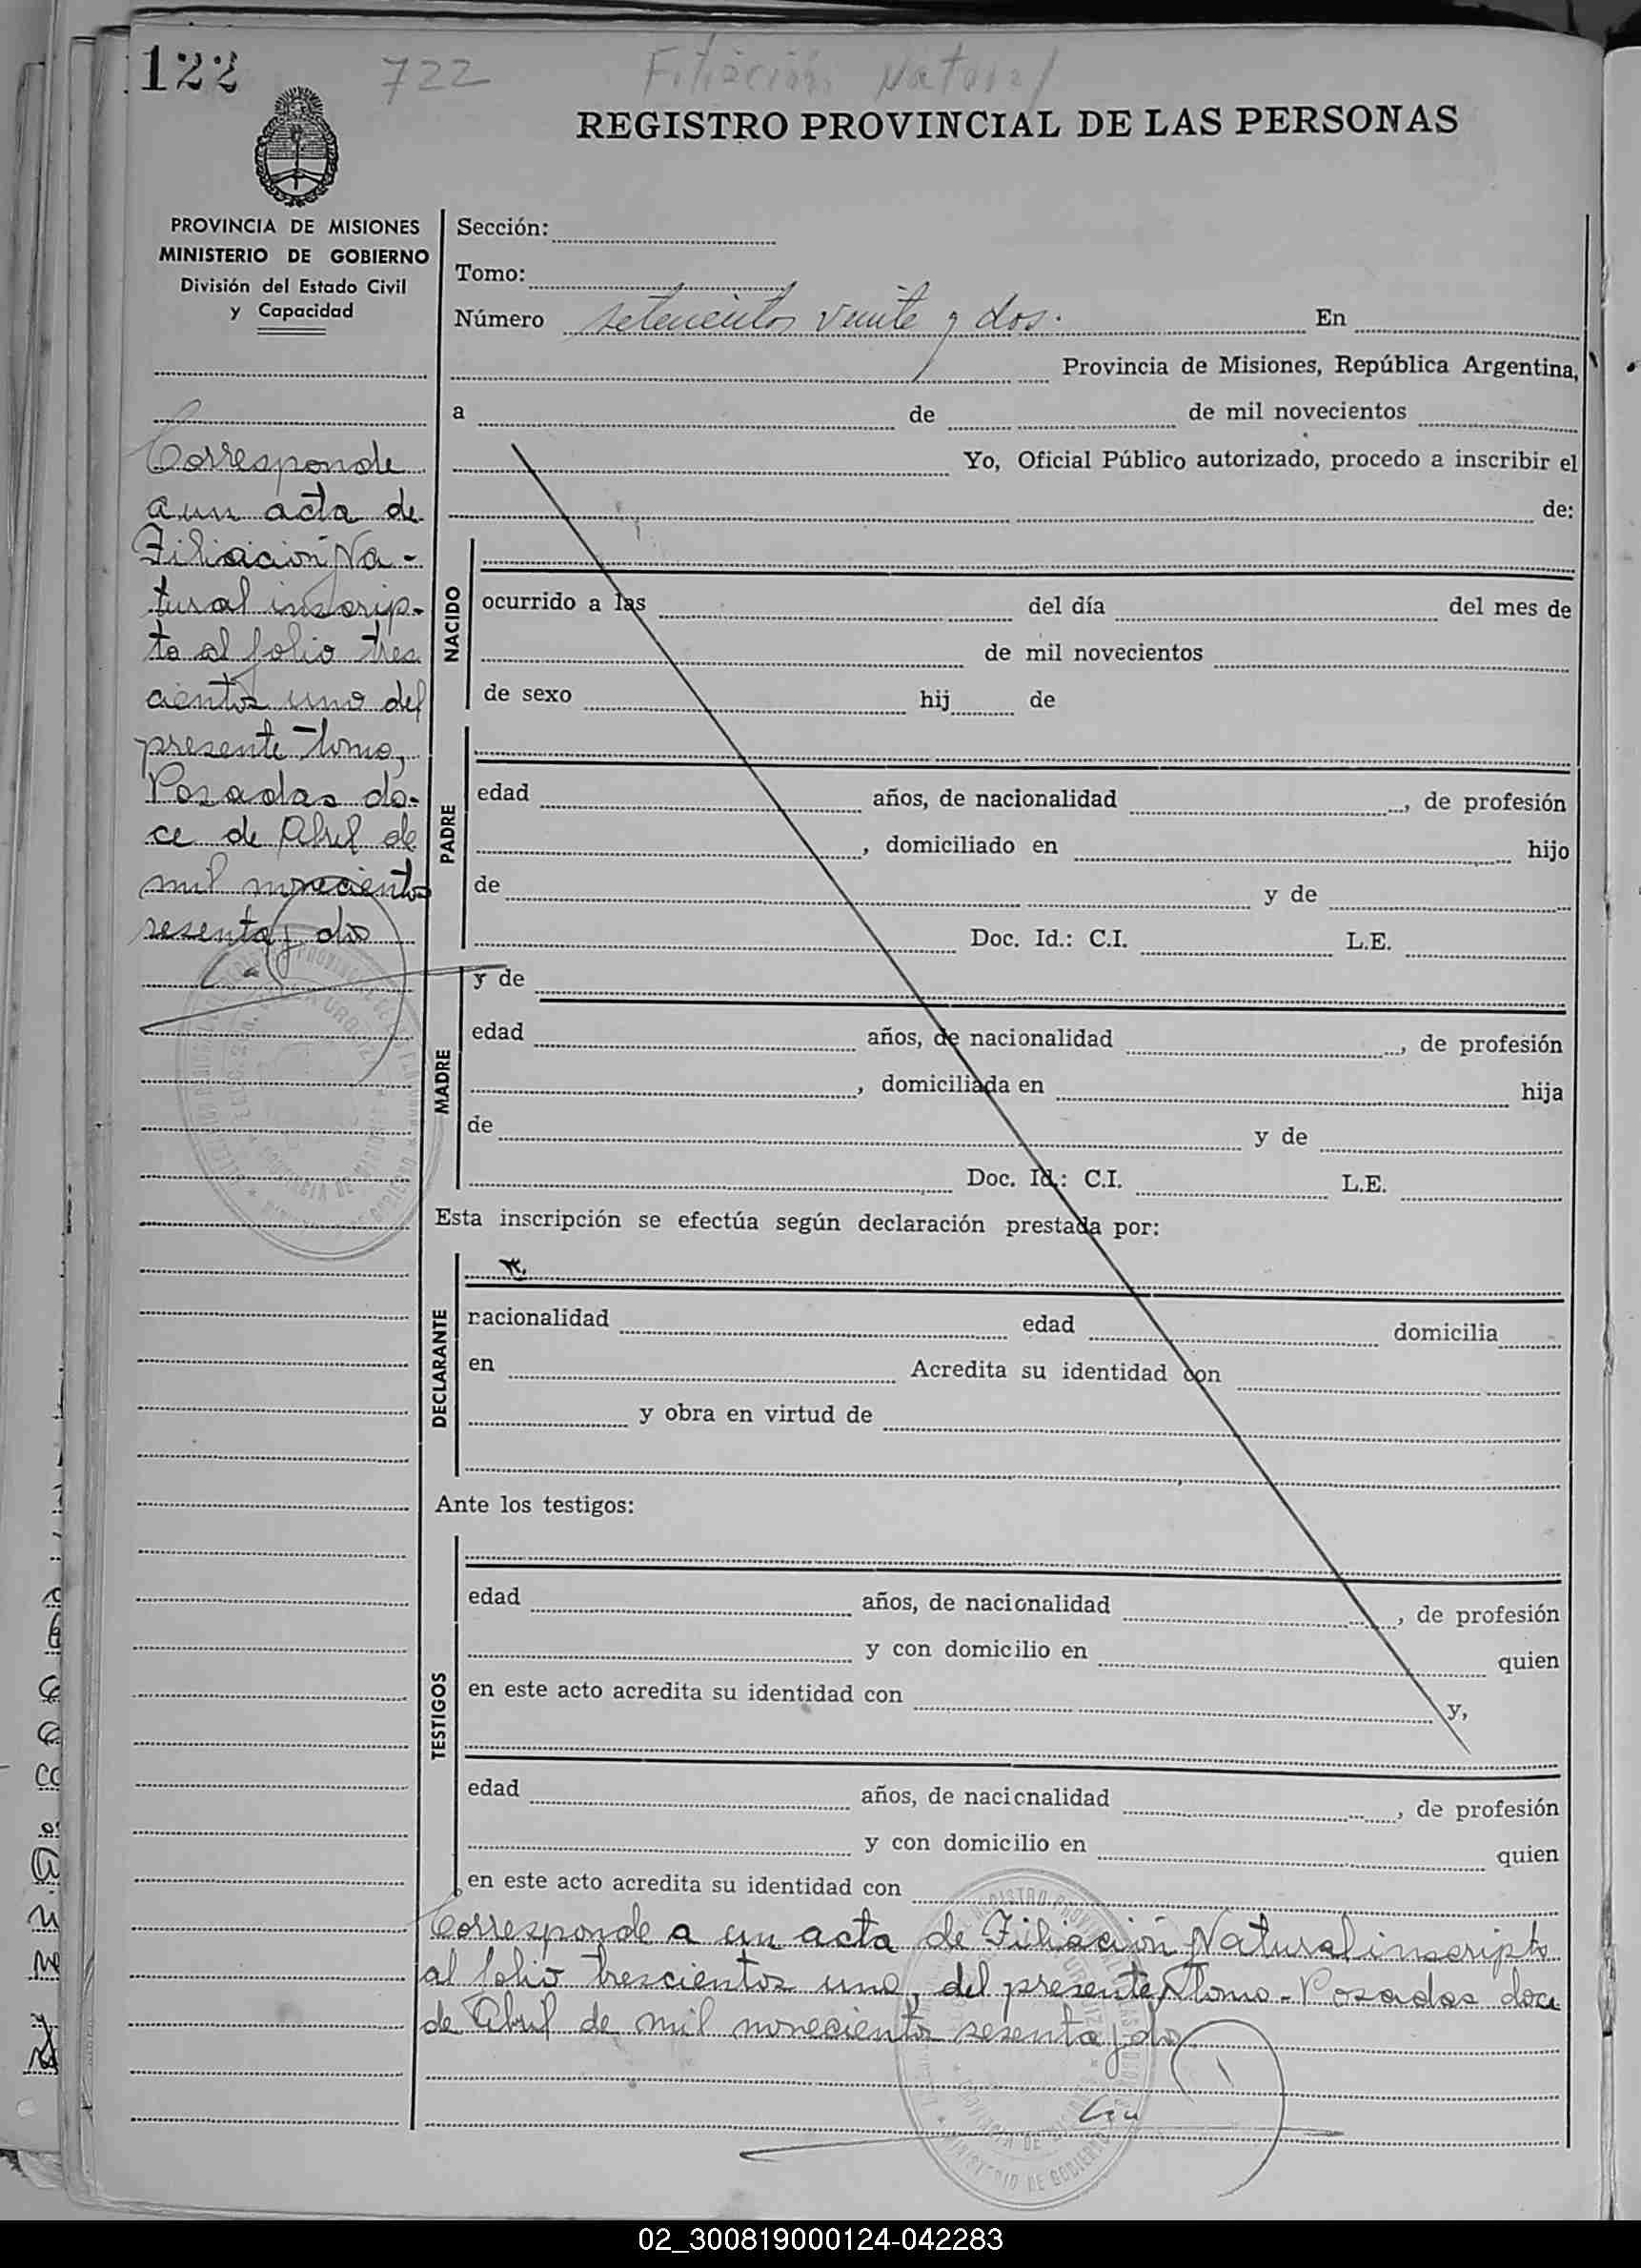 122
722 Filiación Natural
REGISTRO PROVINCIAL DE LAS PERSONAS
PROVINCIA DE MISIONES
MINISTERIO DE GOBIERNO
División del Estado Civil
y Capacidad
Corresponde
a un acta de
Filiación Na-
tural inscrip-
to al folio tres
cientos uno del
presente Tomo,
Posadas do-
ce de Abril de
mil novecientos
sesenta y dos
Sección:
Tomo:
Número setecientos veinte y dos. En
Provincia de Misiones, República Argentina,
a de de mil novecientos
Yo, Oficial Público autorizado, procedo a inscribir el
de:
NACIDO
ocurrido a las del día del mes de
de mil novecientos
de sexo hij de
PADRE
edad años, de nacionalidad , de profesión
, domiciliado en hijo
de y de
Doc. Id.: C.I. L.E.
MADRE
y de
edad años, de nacionalidad , de profesión
, domiciliada en hija
de y de
Doc. Id.: C.I. L.E.
Esta inscripción se efectúa según declaración prestada por:
DECLARANTE
nacionalidad edad domicilia
en Acredita su identidad con
y obra en virtud de
Ante los testigos:
TESTIGOS
edad años, de nacionalidad , de profesión
y con domicilio en quien
en este acto acredita su identidad con y,
edad años, de nacionalidad , de profesión
y con domicilio en quien
en este acto acredita su identidad con
Corresponde a un acta de Filiación Natural inscripto
al folio trescientos uno, del presente Tomo - Posadas doce
de Abril de mil novecientos sesenta y dos
02_300819000124-042283